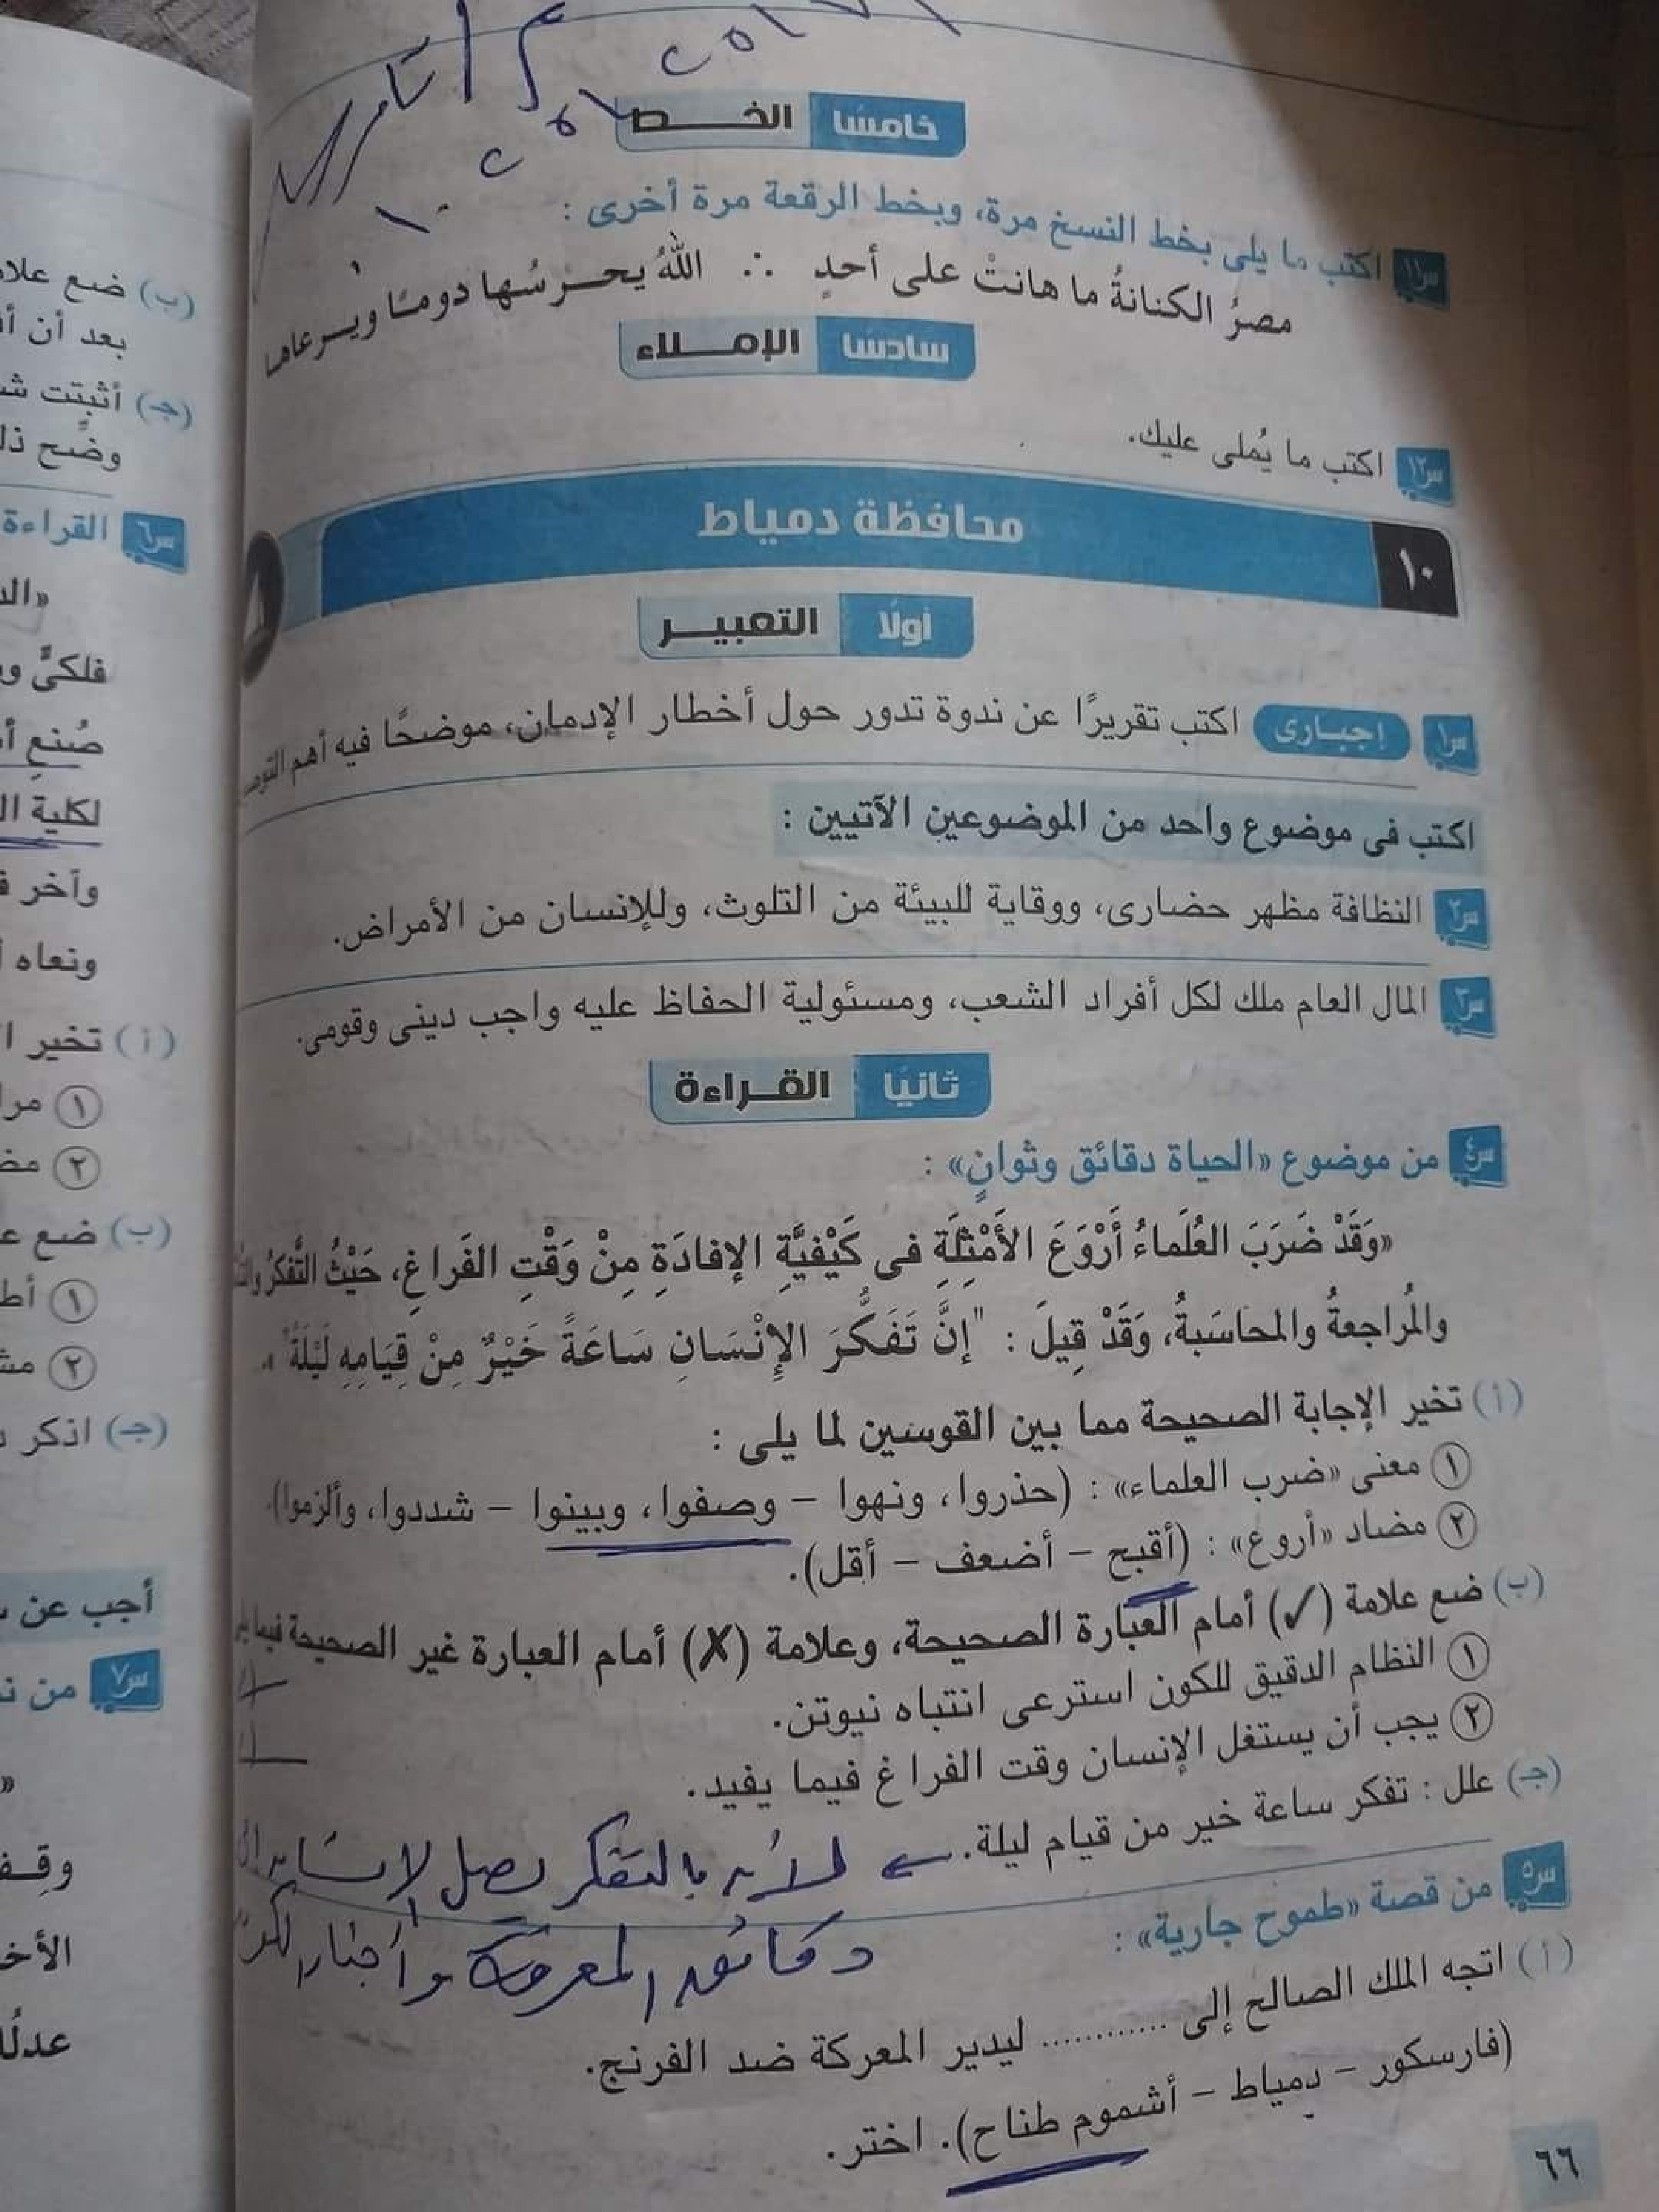 خامسًا الخــط
س١١ اكتب ما يلى بخط النسخ مرة، وبخط الرقعة مرة أخرى :
مصرُ الكنانةُ ما هانتْ على أحدٍ ∴ اللهُ يحـرسُها دومًا ويـرعاها
سادسًا الإمـلاء
س١٢ اكتب ما يُملى عليك.
١٠ محافظة دمياط
أولًا التعبيـر
س١ إجبـارى اكتب تقريرًا عن ندوة تدور حول أخطار الإدمان، موضحًا فيه أهم
اكتب فى موضوع واحد من الموضوعين الآتيين :
س٢ النظافة مظهر حضارى، ووقاية للبيئة من التلوث، وللإنسان من الأمراض.
س٣ المال العام ملك لكل أفراد الشعب، ومسئولية الحفاظ عليه واجب دينى وقومى.
ثانيًا القـراءة
س٤ من موضوع «الحياة دقائق وثوانٍ» :
«وَقَدْ ضَرَبَ العُلَماءُ أَرْوَعَ الأَمْثِلَةِ فى كَيْفيَّةِ الإفادَةِ مِنْ وَقْتِ الفَراغِ، حَيْثُ التَّفكرُ
والمُراجعةُ والمحاسَبةُ، وَقَدْ قِيلَ : "إنَّ تَفَكُّرَ الإِنْسَانِ سَاعَةً خَيْرٌ مِنْ قِيَامِهِ لَيْلَةً"».
(أ) تخير الإجابة الصحيحة مما بين القوسين لما يلى :
١ معنى «ضرب العلماء» : (حذروا، ونهوا – وصفوا، وبينوا – شددوا، وألزموا).
٢ مضاد «أروع» : (أقبح – أضعف – أقل).
(ب) ضع علامة (✓) أمام العبارة الصحيحة، وعلامة (✗) أمام العبارة غير الصحيحة فيما
١ النظام الدقيق للكون استرعى انتباه نيوتن.
٢ يجب أن يستغل الإنسان وقت الفراغ فيما يفيد.
(جـ) علل : تفكر ساعة خير من قيام ليلة. ← لأنه بالتفكر يصل الإنسان إلى
دقائق المعرفة و
س٥ من قصة «طموح جارية» :
(أ) اتجه الملك الصالح إلى ............ ليدير المعركة ضد الفرنج.
(فارسكور – دمياط – أشموم طناح). اختر.
٦٦
(ب) ضع
بعد أن
(جـ) أثبتت
وضِّح
س٦ القراءة
فلكىٍّ
صُنع
لكلية
وآخر
ونعاه
(أ) تخير
١
٢
(ب) ضع
١
٢
(جـ) اذكر
أجب عن
س٧ من